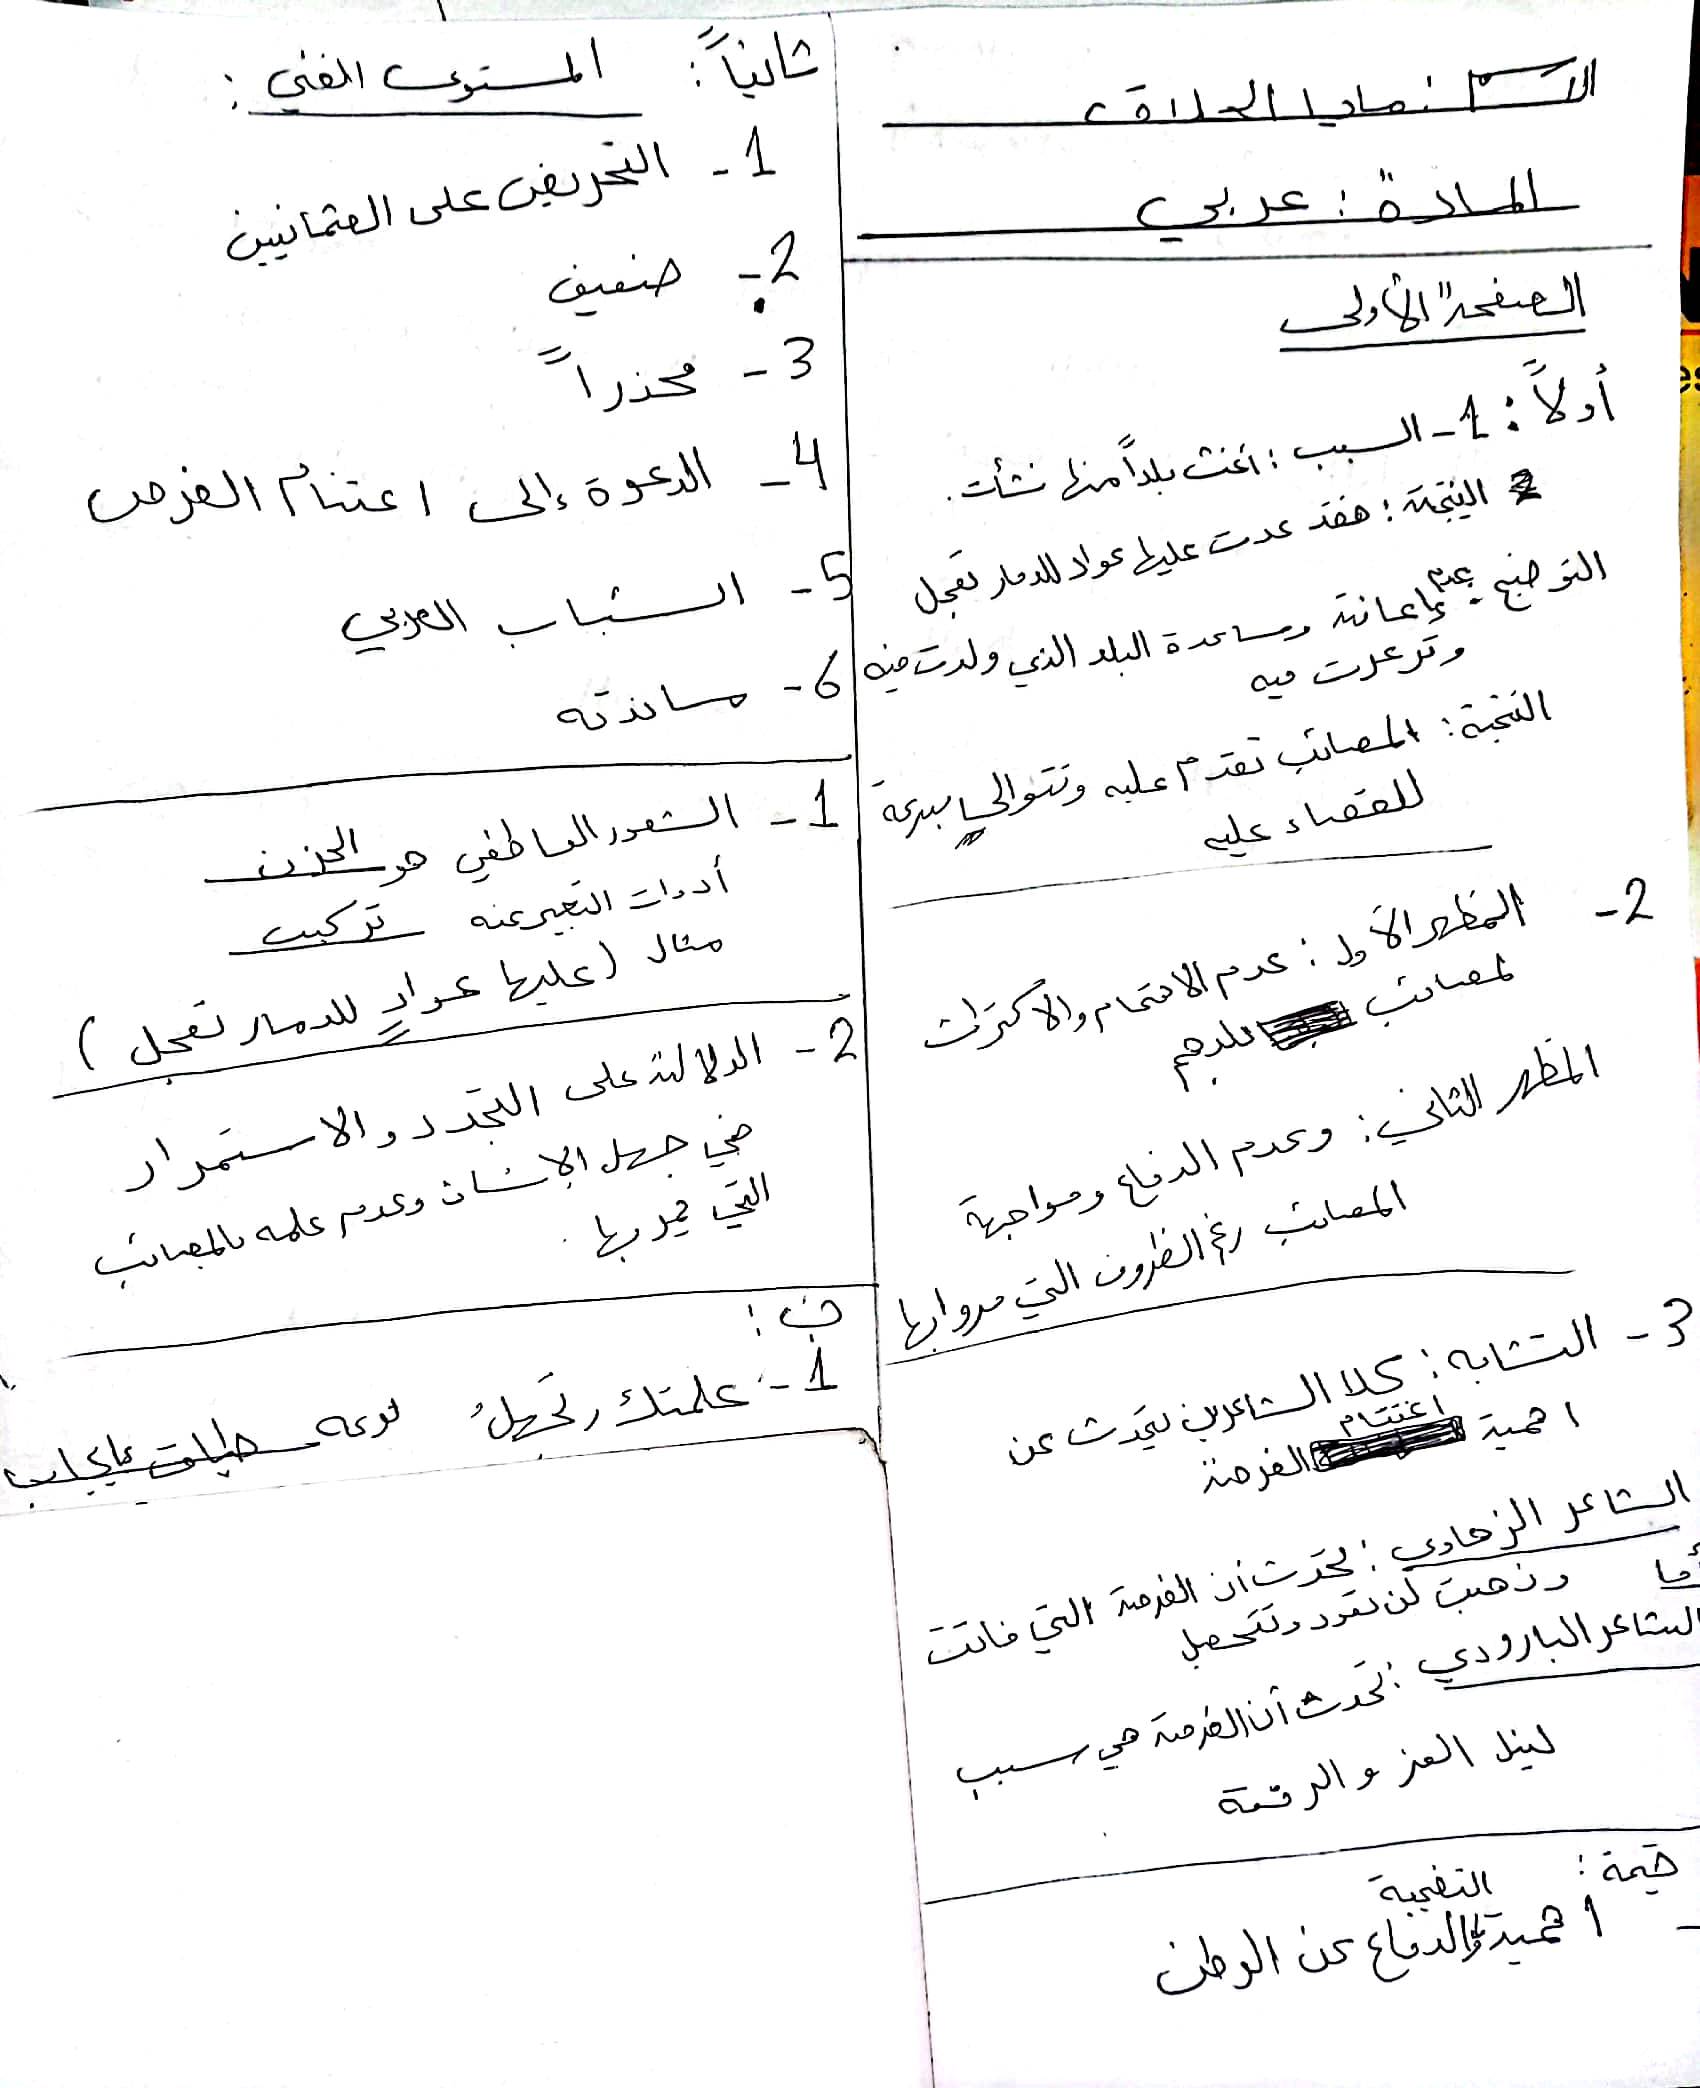 الاسم : مايا الحلاق
المادة : عربي
الصفحة الأولى
أولاً : 1- السبب : أغث بلداً منها نشأت .
النتيجة : فقد عدت عليها عواد للدمار تعجل
التوضيح : عدم إعانة ومساعدة البلد الذي ولدت فيه
وترعرت فيه
النتيجة : المصائب تقدم عليه وتتوالى بسرعة
للقضاء عليه
2- المظهر الأول : عدم الاهتمام والاكتراث
لمصائب بلدهم
المظهر الثاني : وعدم الدفاع ومواجهة
المصائب رغم الظروف التي مروا بها
3- التشابه : كلا الشاعرين يتحدث عن
اهمية اغتنام الفرصة
الشاعر الزهاوي : تحدث أن الفرصة التي فاتت
وذهبت لن تعود وتتحصل
أما
الشاعر البارودي : تحدث أن الفرصة هي سبب
لنيل العز والرفعة
قيمة : التضحية
- اهمية والدفاع عن الوطن
ثانياً : المستوى الفني :
1- التحريض على العثمانيين
2- ضعيف
3- محذراً
4- الدعوة إلى اغتنام الفرص
5- الشباب العربي
6- مساندته
1- الشعور العاطفي هو الحزن
أدوات التعبير عنه تركيب
مثال (عليها عوادٍ للدمار تعجل)
2- الدلالة على التجدد والاستمرار
في جهل الإنسان وعدم علمه بالمصائب
التي يمر بها .
ب :
1- علمتك , تجهلُ نوعه طباق إيجاب